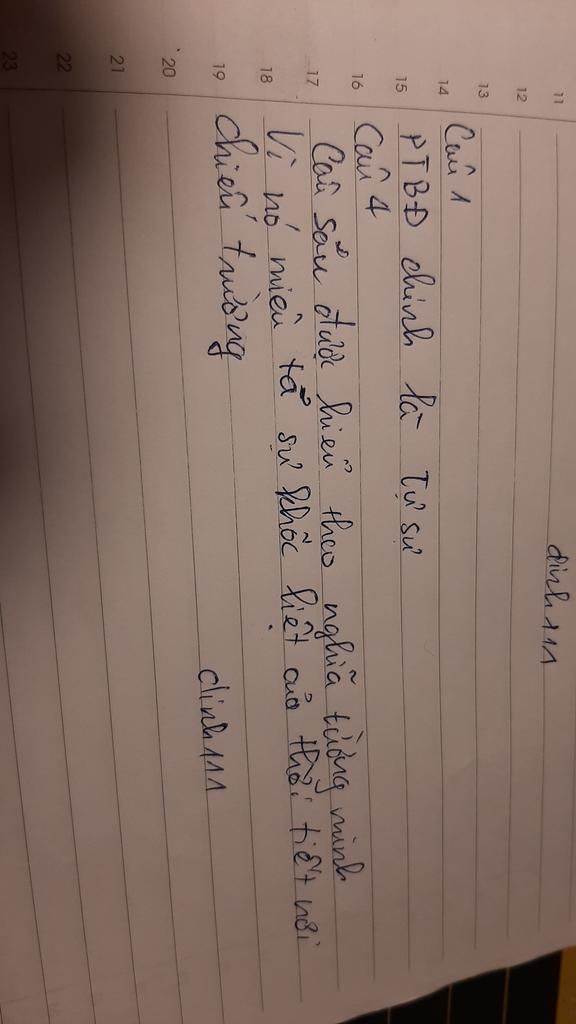 11
đinh111
12
13
14
Câu 1
15
PTBĐ chính là tự sự
16
Câu 4
17
Câu sấu được hiểu theo nghĩa tường minh
18
Vì nó miêu tả sự khốc liệt của thời tiết nơi
19
chiến trường
đinh111
20
21
22
23